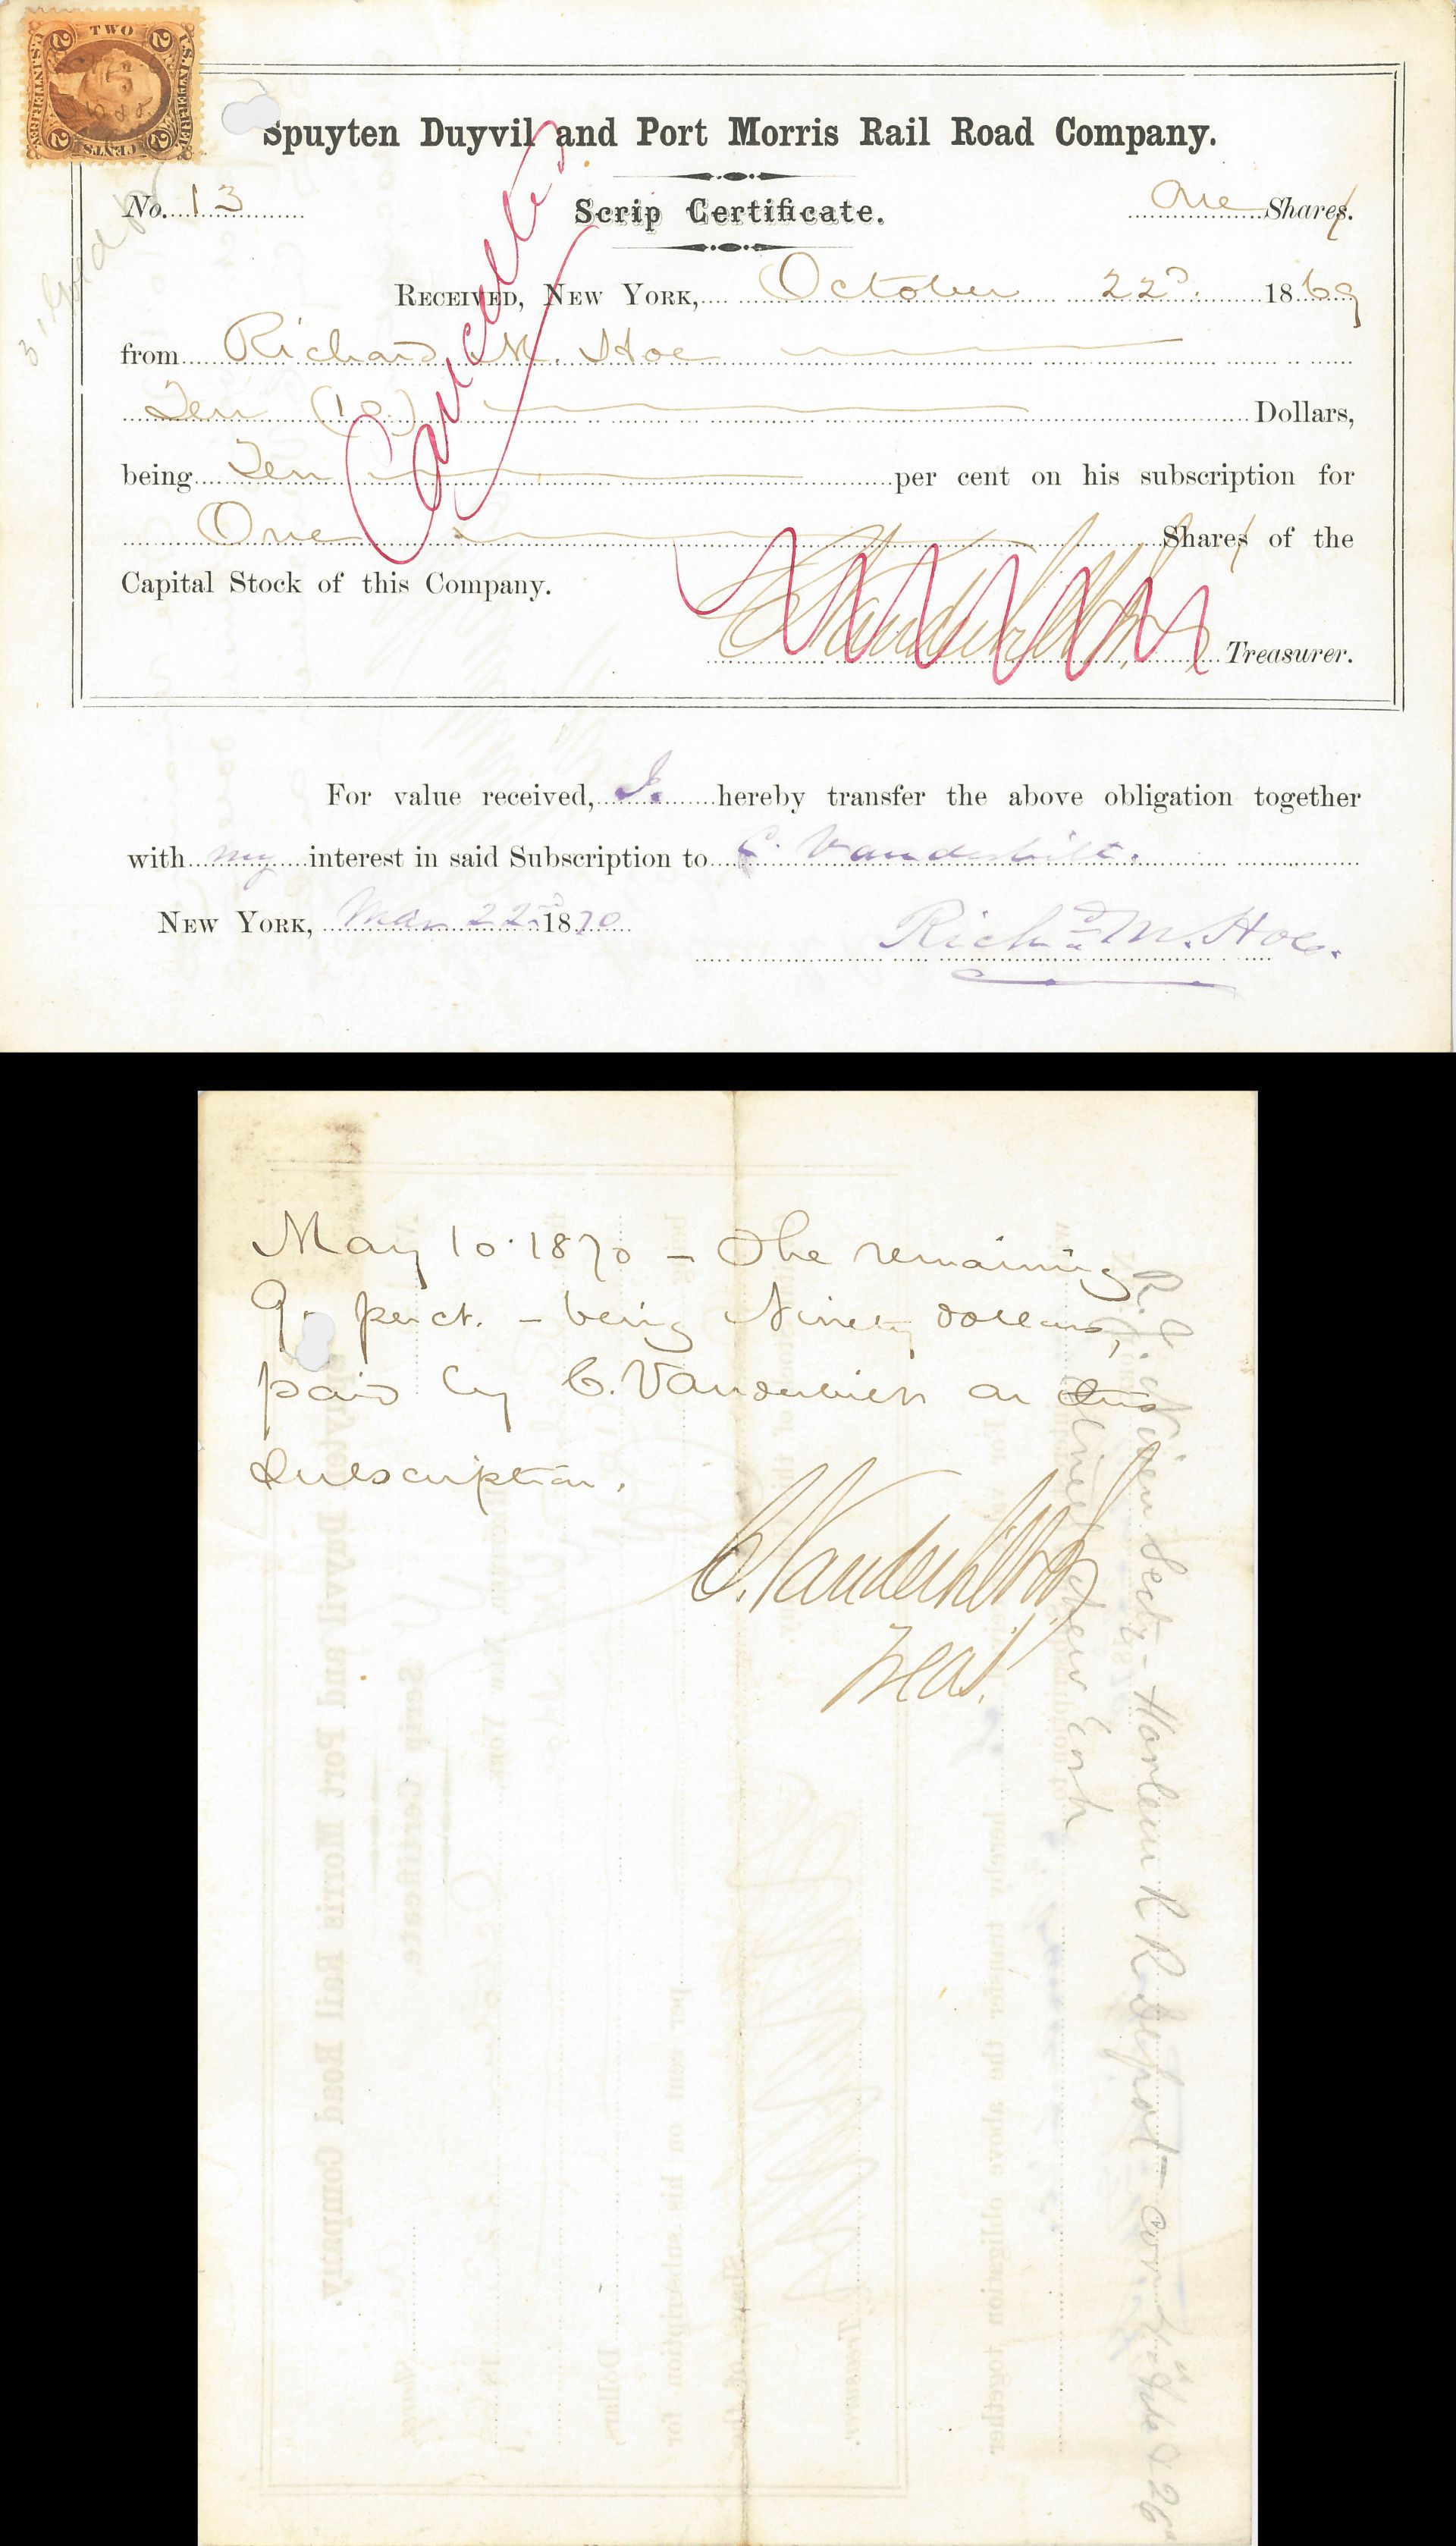 U.S. INTER. REV.
TWO
2 2
2 CENTS 2
Spuyten Duyvil and Port Morris Rail Road Company.
No. 13
Scrip Certificate.
One Share.
Received, New York, October 22D. 1869
from Richard M. Hoe
Ten (10) Dollars,
being Ten per cent on his subscription for
One Share of the
Capital Stock of this Company.
C Vanderbilt Jr
Treasurer.
Cancelled
For value received, I. hereby transfer the above obligation together
with my interest in said Subscription to C. Vanderbilt.
New York, Mar 22nd 1870
Richd M. Hoe.
May 10. 1870 – The remaining
90 per ct. – being Ninety dollars,
paid by C. Vanderbilt on this
Subscription.
C. Vanderbilt Jr
Treas.
Secty – Harlem R R Depot – cor 4th Ave & 26
New York